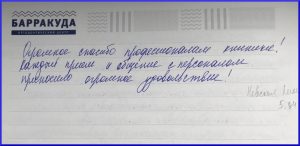 БАРРАКУДА
Огромное спасибо профессионалам клиники!
Каждый прием и общение с персоналом
приносило огромное удовольствие!